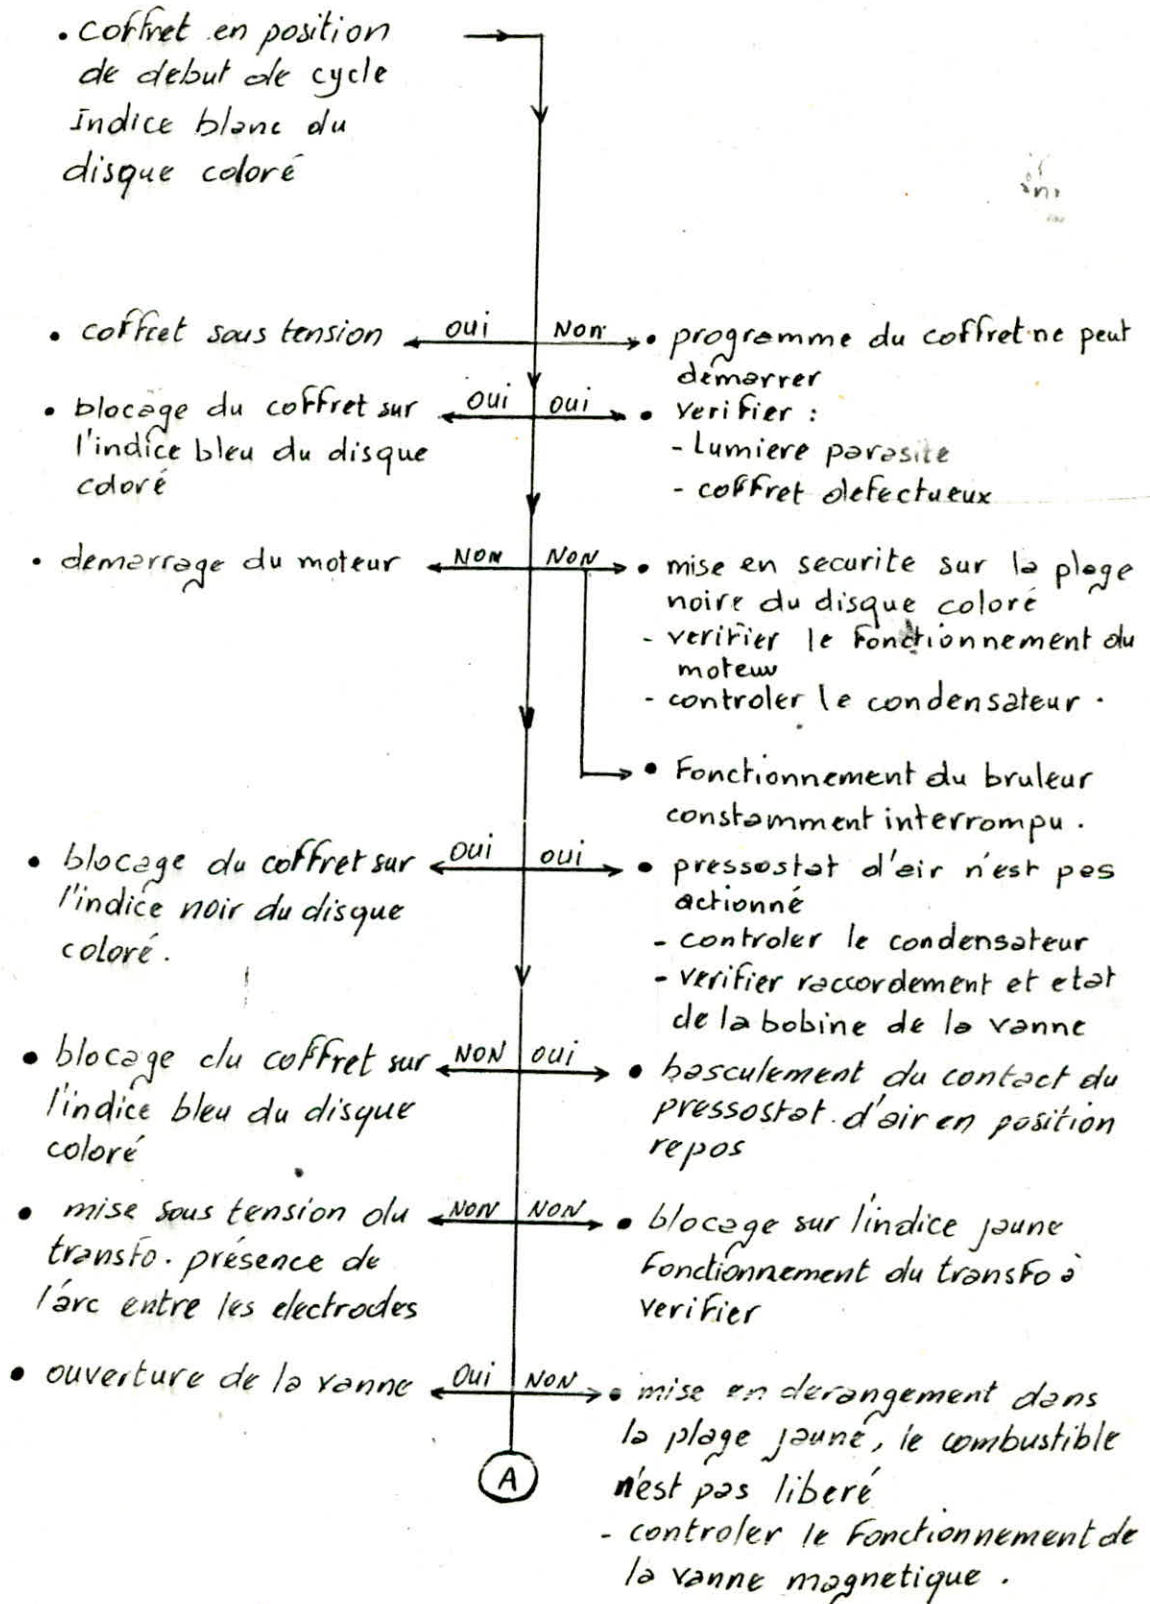 . coffret en position
de debut de cycle
Indice blanc du
disque coloré
. coffret sous tension
oui
Non
. programme du coffret ne peut
démarrer
. blocage du coffret sur
l'indice bleu du disque
coloré
oui
oui
. verifier :
- Lumiere parasite
- coffret defectueux
. demarrage du moteur
NON
NON
. mise en securite sur la plage
noire du disque coloré
- verifier le Fonctionnement du
moteur
- controler le condensateur .
. Fonctionnement du bruleur
constamment interrompu .
. blocage du coffret sur
l'indice noir du disque
coloré .
oui
oui
. pressostat d'air n'est pas
actionné
- controler le condensateur
- verifier raccordement et etat
de la bobine de la vanne
. blocage du coffret sur
l'indice bleu du disque
coloré
NON
oui
. basculement du contact du
pressostat d'air en position
repos
. mise sous tension du
transfo . présence de
l'arc entre les electrodes
NON
NON
. blocage sur l'indice jaune
Fonctionnement du transfo à
verifier
. ouverture de la vanne
Oui
NON
. mise en derangement dans
la plage jaune, le combustible
n'est pas liberé
- controler le Fonctionnement de
la vanne magnetique .
A